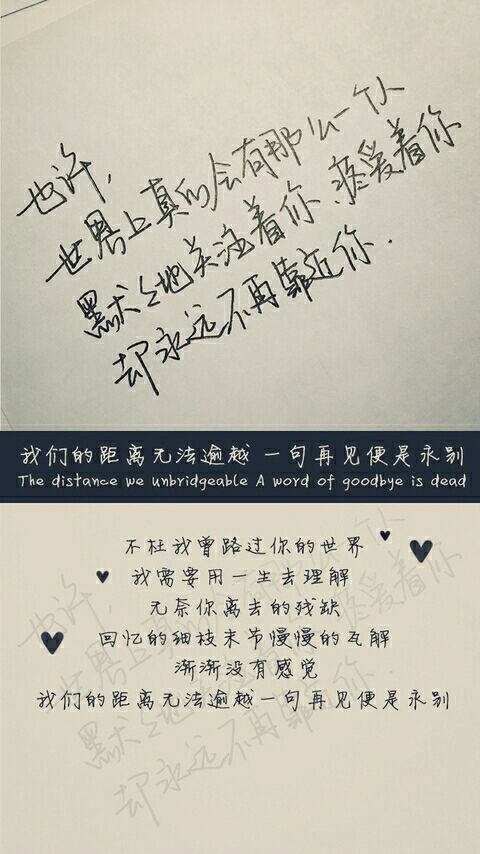 也许，
世界上真的会有那么一个人
默默地关注着你、疼爱着你
却永远不再靠近你．
我们的距离无法逾越 一句再见便是永别
The distance we unbridgeable A word of goodbye is dead
不枉我曾路过你的世界
我需要用一生去理解
无奈你离去的残缺
回忆的细枝末节慢慢的瓦解
渐渐没有感觉
我们的距离无法逾越一句再见便是永别